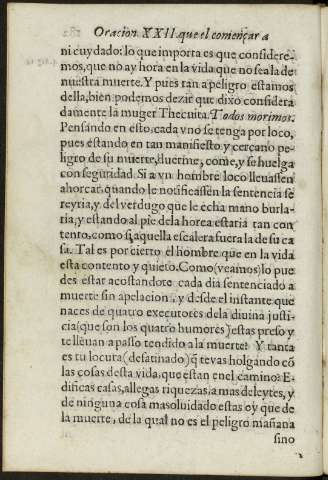 Oracion XXII. que el començar a
ni cuydado: lo que importa es que considere-
mos, que no ay hora en la vida que no sea la de
nuestra muerte. Y pues tan a peligro estamos
della, bien podemos dezir que dixo considera
damente la muger Thecuita. Todos morimos.
Pensando en esto, cada vno se tenga por loco,
pues estando en tan manifiesto y cercano pe-
ligro de su muerte, duerme, come, y se huelga
con seguridad. Si a vn hombre loco lleuassen a
ahorcar, quando le notificassen la sentencia se
reyria, y del verdugo que le echa mano burla-
ria, y estando al pie de la horca estaria tan con
tento, como si aquella escalera fuera la de su ca
sa. Tal es por cierto el hombre que en la vida
esta contento y quieto. Como (veamos) lo pue
des estar acostandote cada dia sentenciado a
muerte sin apelacion, y desde el instante que
naces de quatro executores de la diuina justi-
cia (que son los quatro humores) estas preso y
te lleuan a passo tendido a la muerte? Y tanta
es tu locura (desatinado) q̃ te vas holgando cõ
las cosas desta vida, que estan en el camino? E-
dificas casas, allegas riquezas, amas deleytes, y
de ninguna cosa mas oluidado estas oy que de
la muerte, de la qual no es el peligro mañana
sino